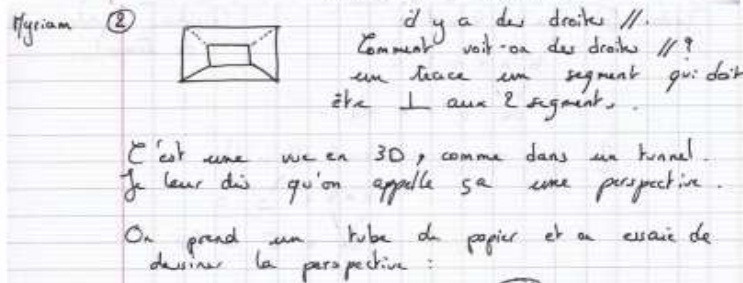 Myriam ② il y a des droites //.
Comment voit-on des droites // ?
on trace un segment qui doit
être ⊥ aux 2 segments.
C'est une vue en 3D, comme dans un tunnel.
Je leur dis qu'on appelle ça une perspective.
On prend un tube de papier et on essaie de
dessiner la perspective :